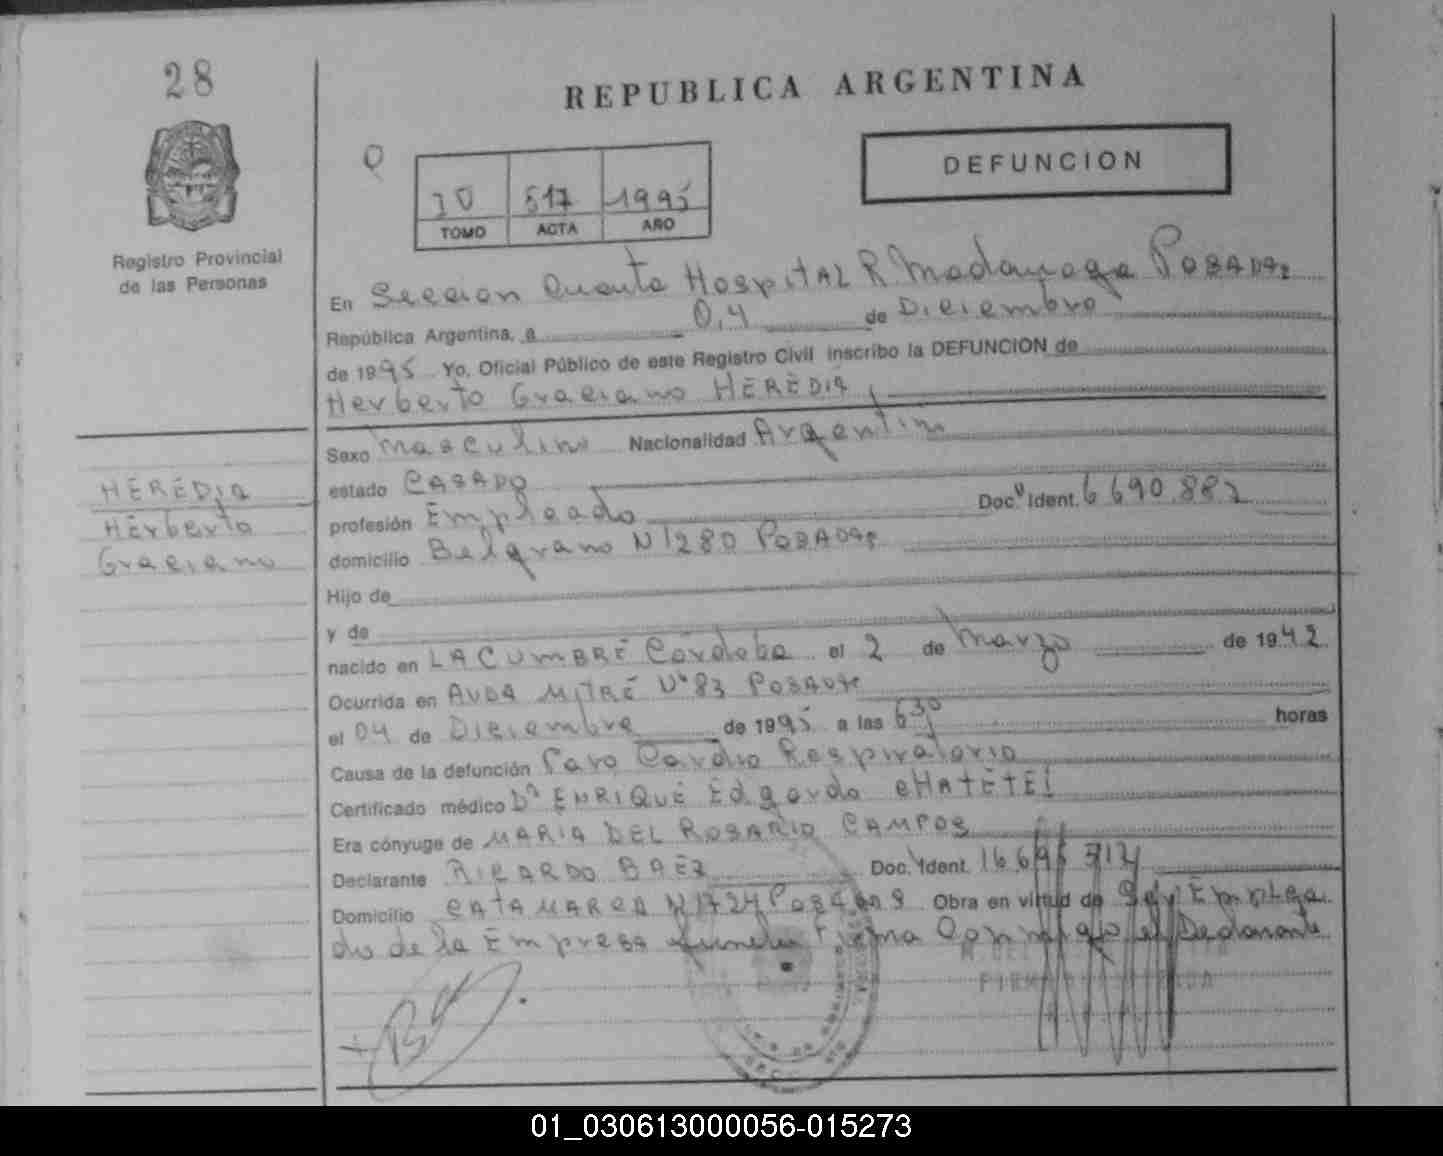 28
REPUBLICA ARGENTINA
DEFUNCION
517 1995
TOMO ACTA AÑO
Registro Provincial
de las Personas
En Seccion Cuarta HospitAL R. Madariaga POSADAS
República Argentina, a 04 de Diciembre
de 1995 Yo, Oficial Público de este Registro Civil inscribo la DEFUNCION de
Herberto Graciano HEREDIA
Sexo masculino Nacionalidad Argentino
HEREDIA
Herberto
Graciano
estado CASADO
profesión Empleado Doc. Ident. 6690.882
domicilio Belgrano N 1280 POSADAS
Hijo de
y de
nacido en LA CUMBRE Córdoba el 2 de Marzo de 1942
Ocurrida en AVDA MITRE Nº 83 POSADAS
el 04 de Diciembre de 1995 a las 6,30 horas
Causa de la defunción Paro Cardio Respiratorio
Certificado médico Dr ENRIQUE Edgardo
Era cónyuge de MARIA DEL ROSARIO CAMPOS
Declarante RICARDO BAEZ Doc. Ident. 16.695
Domicilio CATAMARCA N 1724 POSADAS Obra en virtud de Ser Emplea
do de la Empresa Firma Conmigo el Declarante
01_030613000056-015273